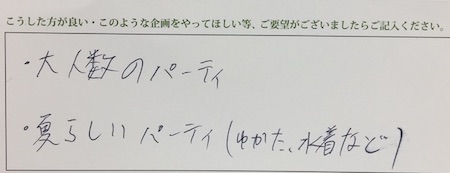 こうした方が良い・このような企画をやってほしい等、ご要望がございましたらご記入ください。
・大人数のパーティ
・夏らしいパーティ(ゆかた、水着など)